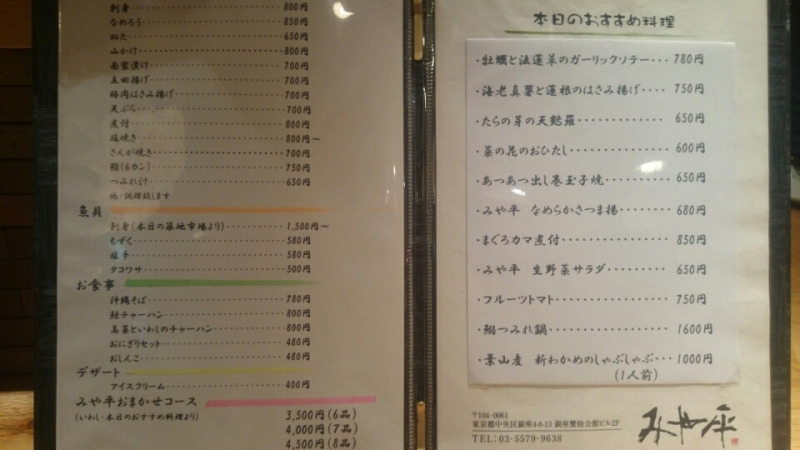 刺身 800円
なめろう 850円
ぬた 650円
山かけ 800円
南蛮漬け 700円
立田揚げ 700円
梅肉はさみ揚げ 700円
天ぷら 700円
煮付 800円
塩焼き 800円~
さんが焼き 700円
鮨(6カン) 750円
つみれ汁 650円
他・調理致します
魚貝
刺身(本日の築地市場より) 1,500円~
もずく 580円
塩辛 580円
タコワサ 500円
お食事
沖縄そば 780円
鮭チャーハン 800円
高菜といわしのチャーハン 800円
おにぎりセット 480円
おしんこ 480円
デザート
アイスクリーム 400円
みや平おまかせコース
(いわし・本日のおすすめ料理より) 3,500円(6品)
4,000円(7品)
4,500円(8品)
本日のおすすめ料理
・牡蠣と法蓮草のガーリックソテー・・・780円
・海老真薯と蓮根のはさみ揚げ・・・・750円
・たらの芽の天麩羅・・・・・・・・・・・・・650円
・菜の花のおひたし・・・・・・・・・・・・・600円
・あつあつ出し巻玉子焼・・・・・・・・・・650円
・みや平 なめらかさつま揚・・・・・・・680円
・まぐろカマ煮付・・・・・・・・・・・・・・・850円
・みや平 生野菜サラダ・・・・・・・・・・650円
・フルーツトマト・・・・・・・・・・・・・・・750円
・鰯つみれ鍋・・・・・・・・・・・・・・・・・1600円
・葉山産 新わかめのしゃぶしゃぶ・・・1000円
(1人前)
〒104-0061
東京都中央区銀座4-8-13 銀座蟹睦会館ビル2F
TEL:03-5579-9638
みや平